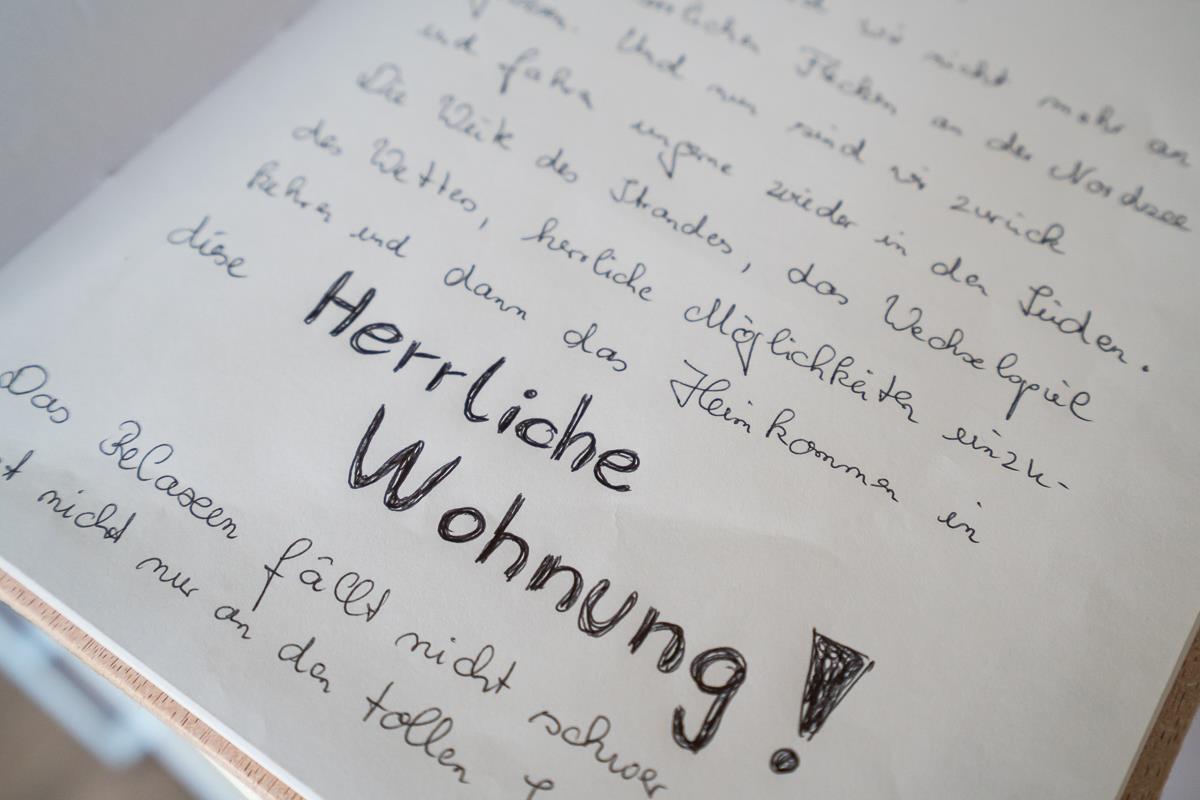 wir nicht mehr an
Flecken an der Nordsee
Und nun sind wir zurück
und fahren ungerne wieder in den Süden.
Die Weite des Strandes, das Wechselspiel
des Wetters, herrliche Möglichkeiten einzu-
kehren und dann das Heimkommen in
diese Herrliche
Wohnung!
Das Relaxen fällt nicht schwer
nicht nur an den tollen